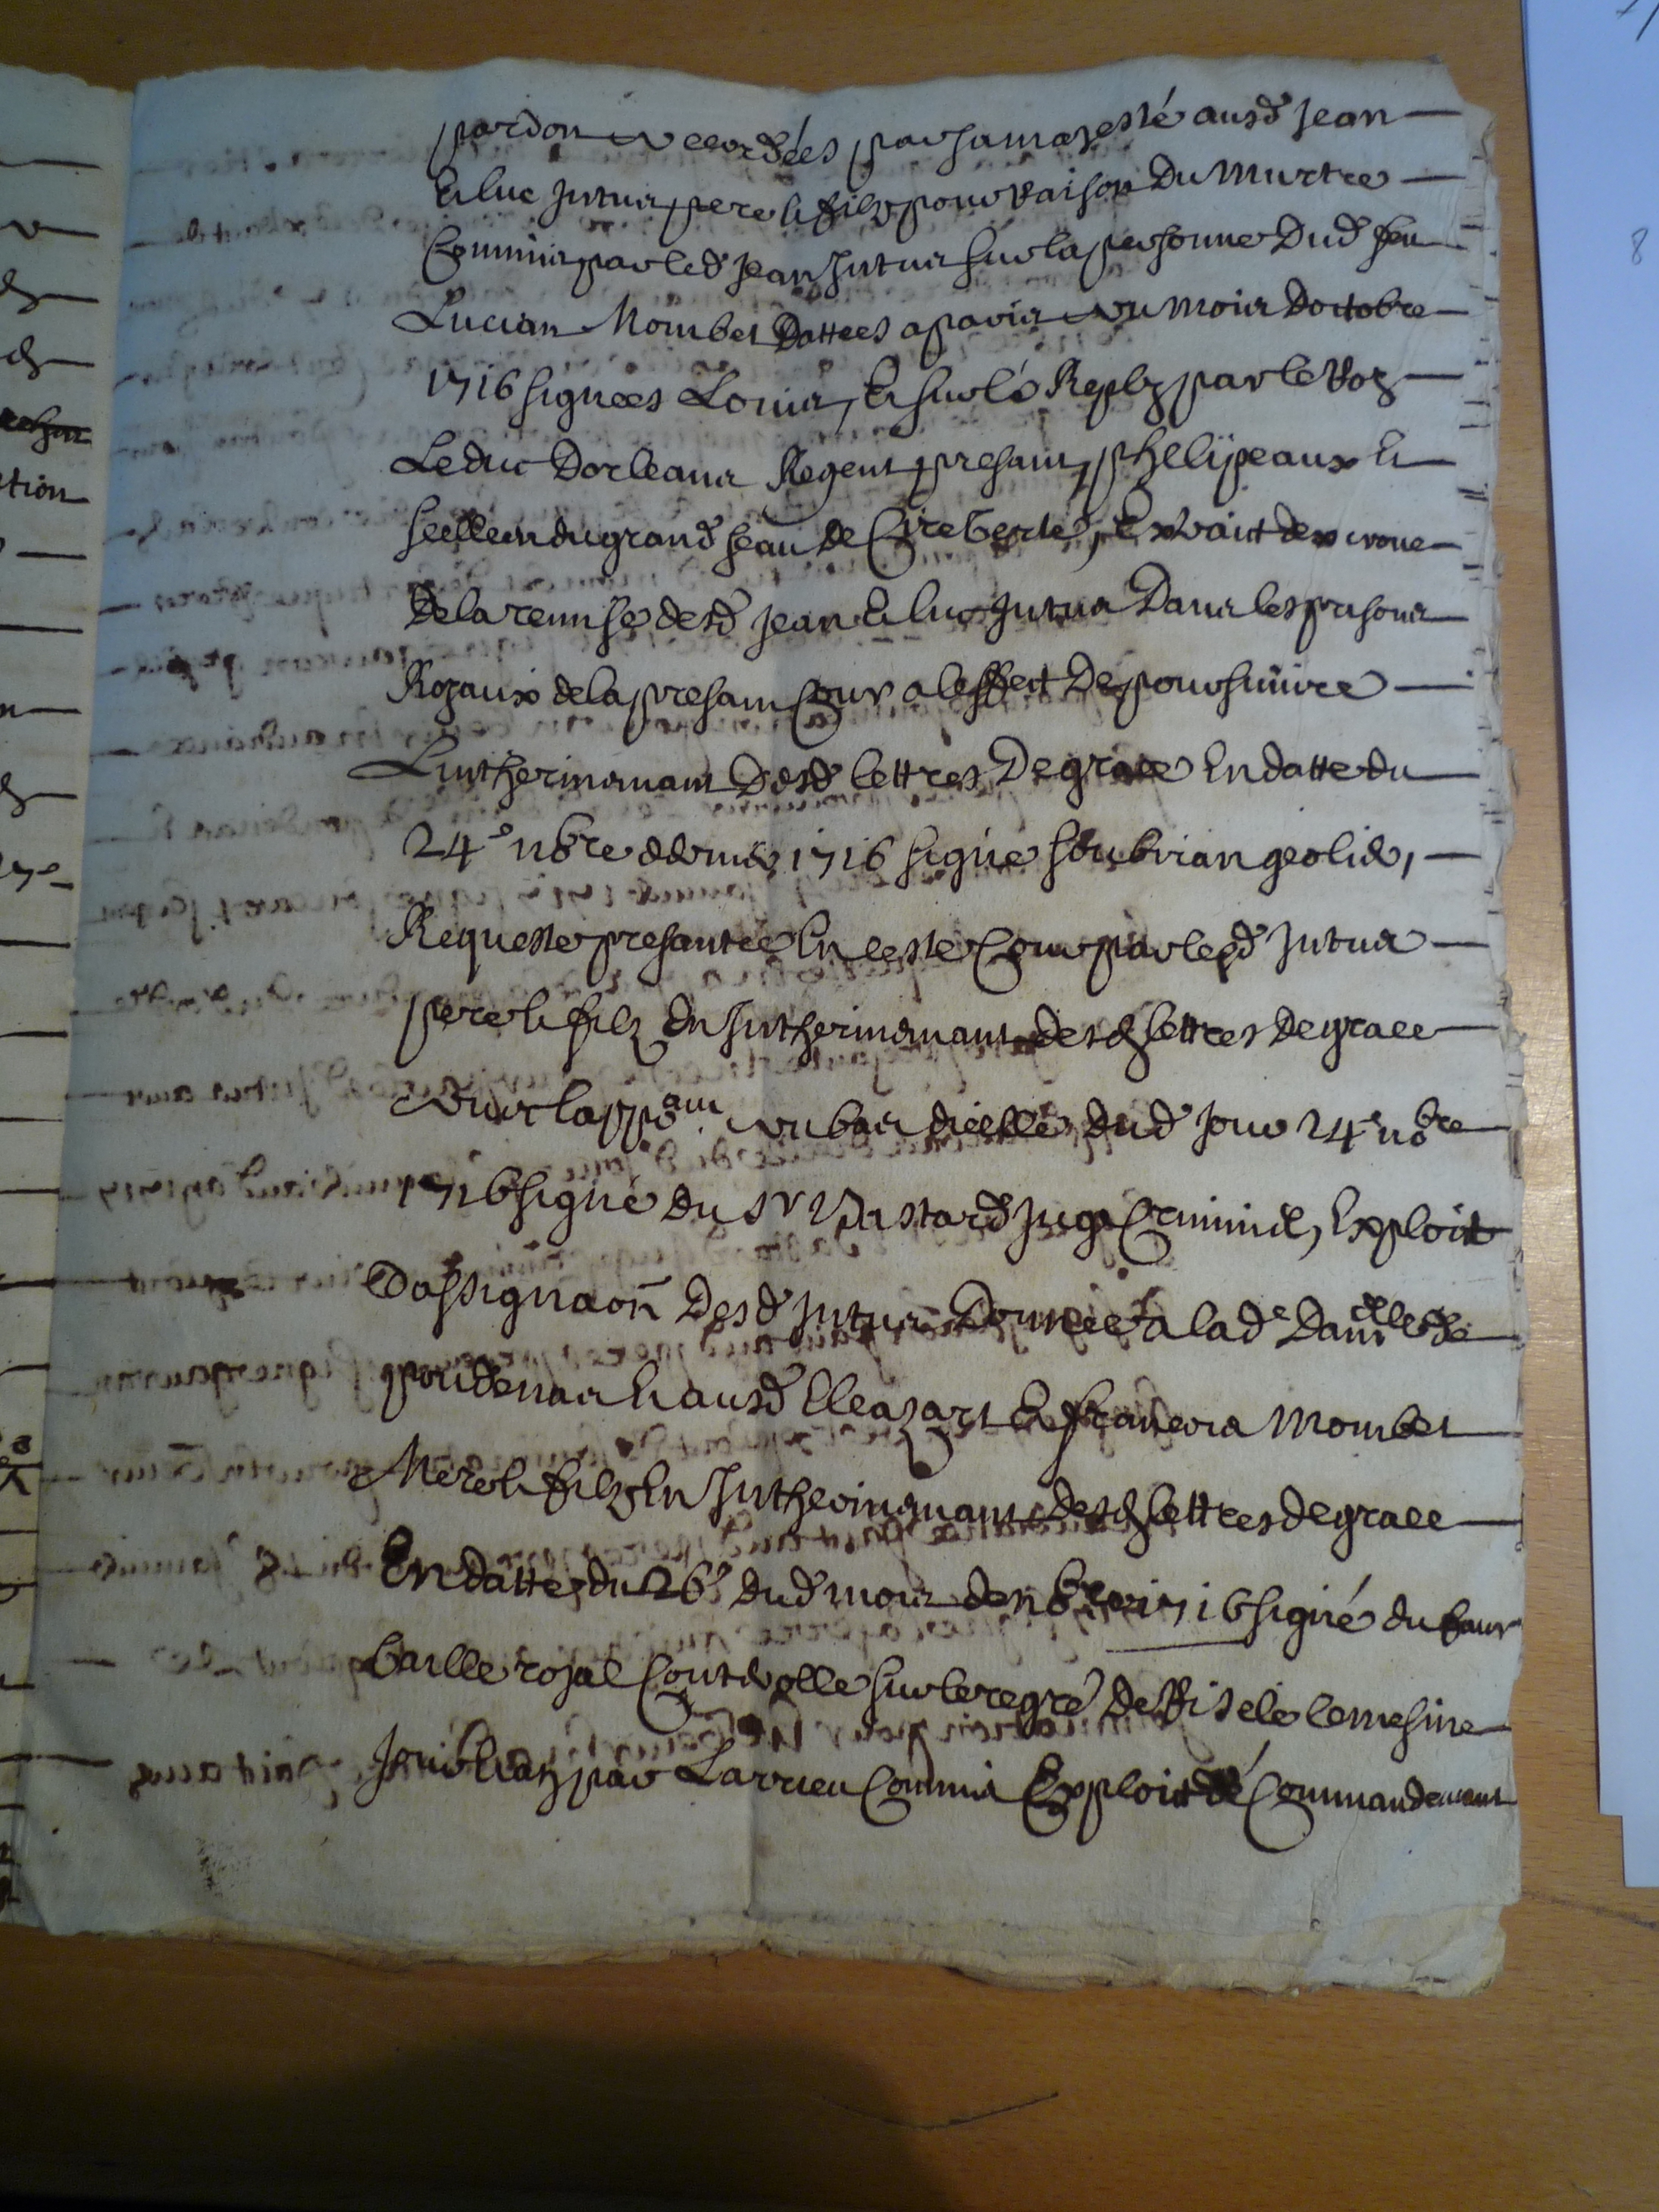 pardon accordées par sa majesté ausd Jean
Et luc Intus pere et filz pour Raison Du Murtre
Commis par led Jean Intus sur la personne Dud feu
Lucian Mombet Dattees a paris au mois Doctobre
1716 signees Louis, Et sur lé Reply par le Roy
Le duc Dorleans Regent presant, phelijpeaux Et
scellees du grand seau de Cire verte, Extrait descroue
De la remise desd Jean Et luc Intus Dans les prisons
Royaux de la presant Cour a leffect De poursuivre
Lintherinemant Desd lettres De grace En datte du
24e nbre dernier 1716 signé Soubrian geolier,
Requeste presantee En ceste Cour par lesd Intus
pere et filz En Intherinemant desd lettres De grace
avec lappant au bas dicelle Dud jour 24e nbre
1716 signé du Sr Bastard Juge Criminel, Exploit
Dassignaon Desd Intus Donnée a lade Damlle de
pridenas Et ausd Eleazart Et francois Mombet
Mere et filz En Intherinemant desd lettres de grace
En datte du 26e dud mois de nbre 1716 signé du faur
baille royal Controlle sur le regre De le mesme
Jour par Larrieu Commis Exploit dé Commandemant